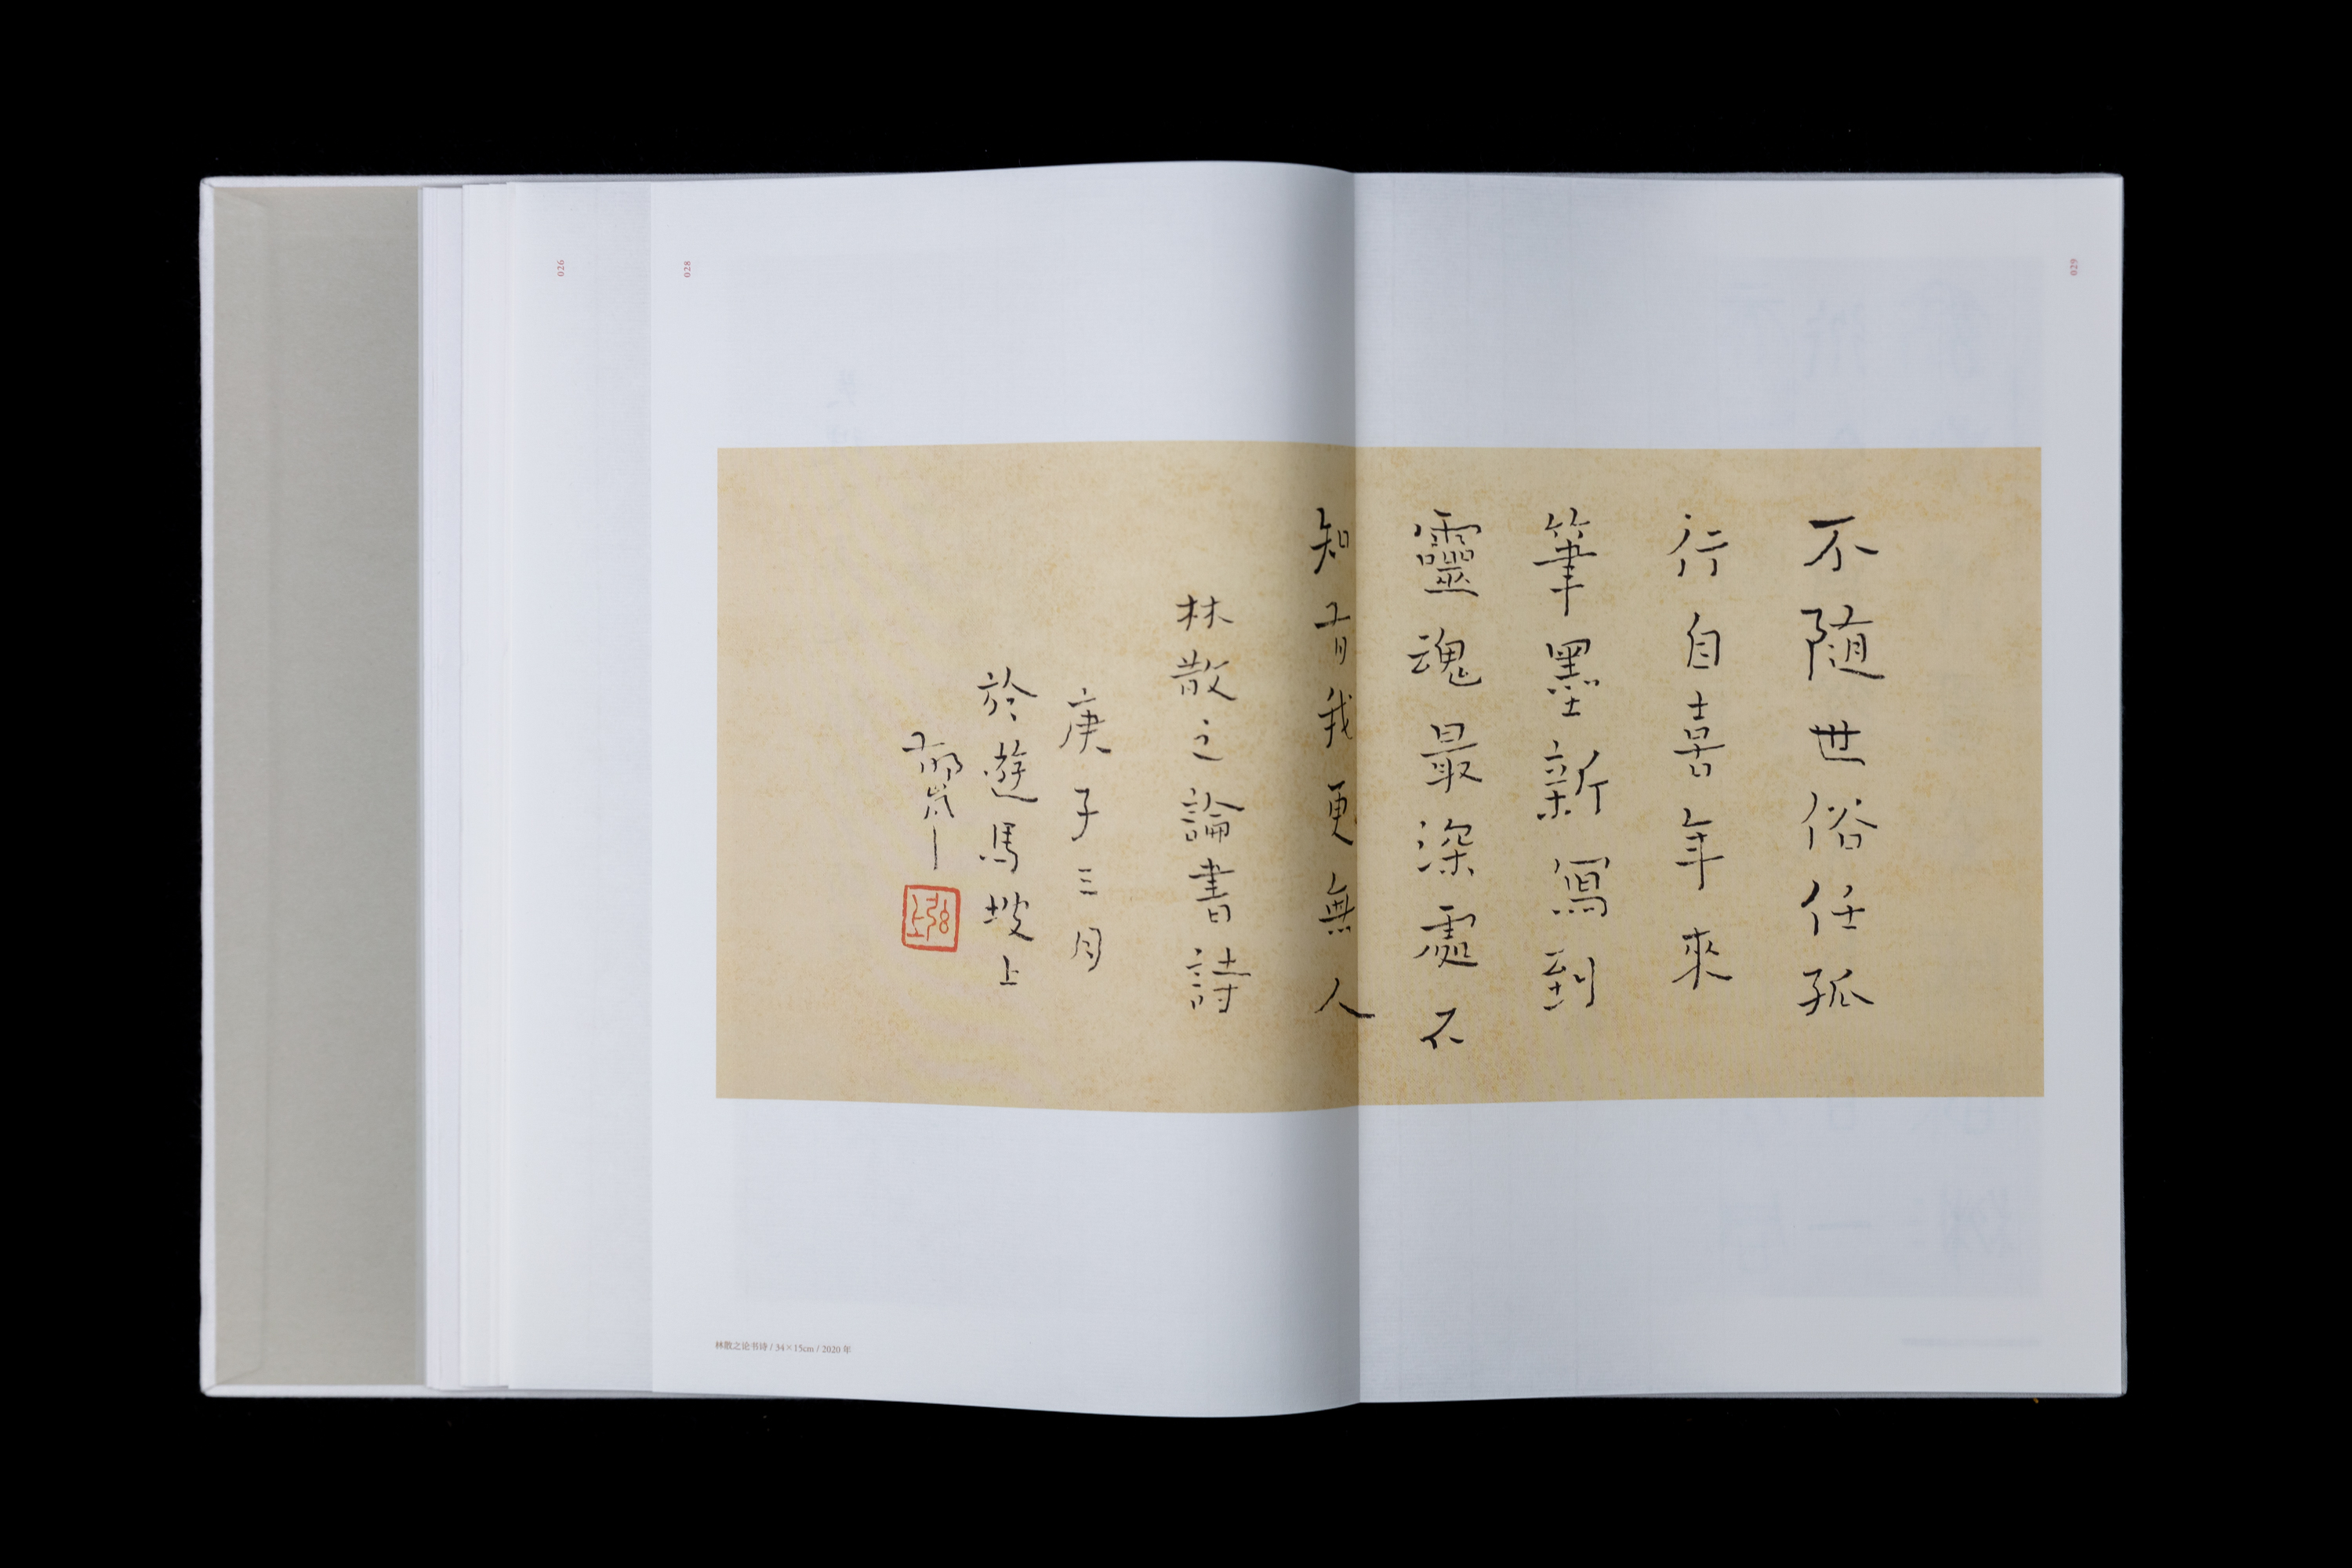 026
028
029
不随世俗任孤
行自喜年來
筆墨新寫到
靈魂最深處不
知有我更無人
林散之論書詩
庚子三月
於遊馬坡上
林散之论书诗 / 34×15cm / 2020 年